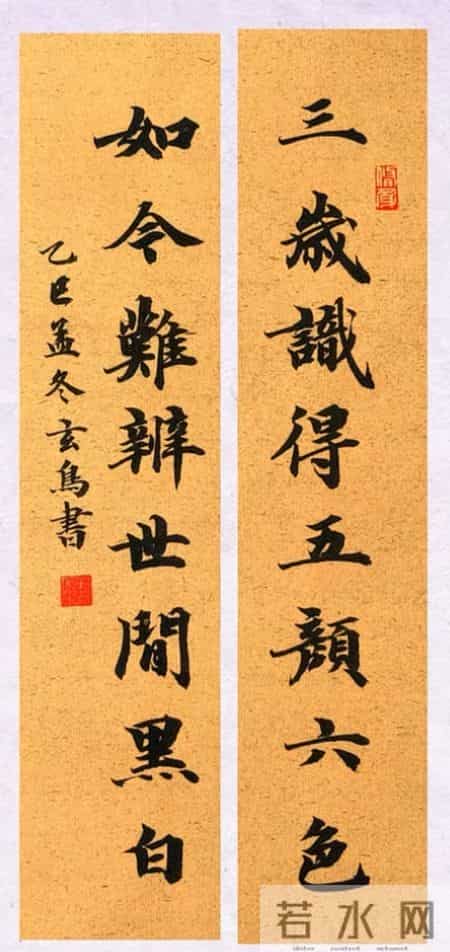 三歲識得五顏六色
如今難辨世間黑白
乙巳孟冬玄鳥書
若水网